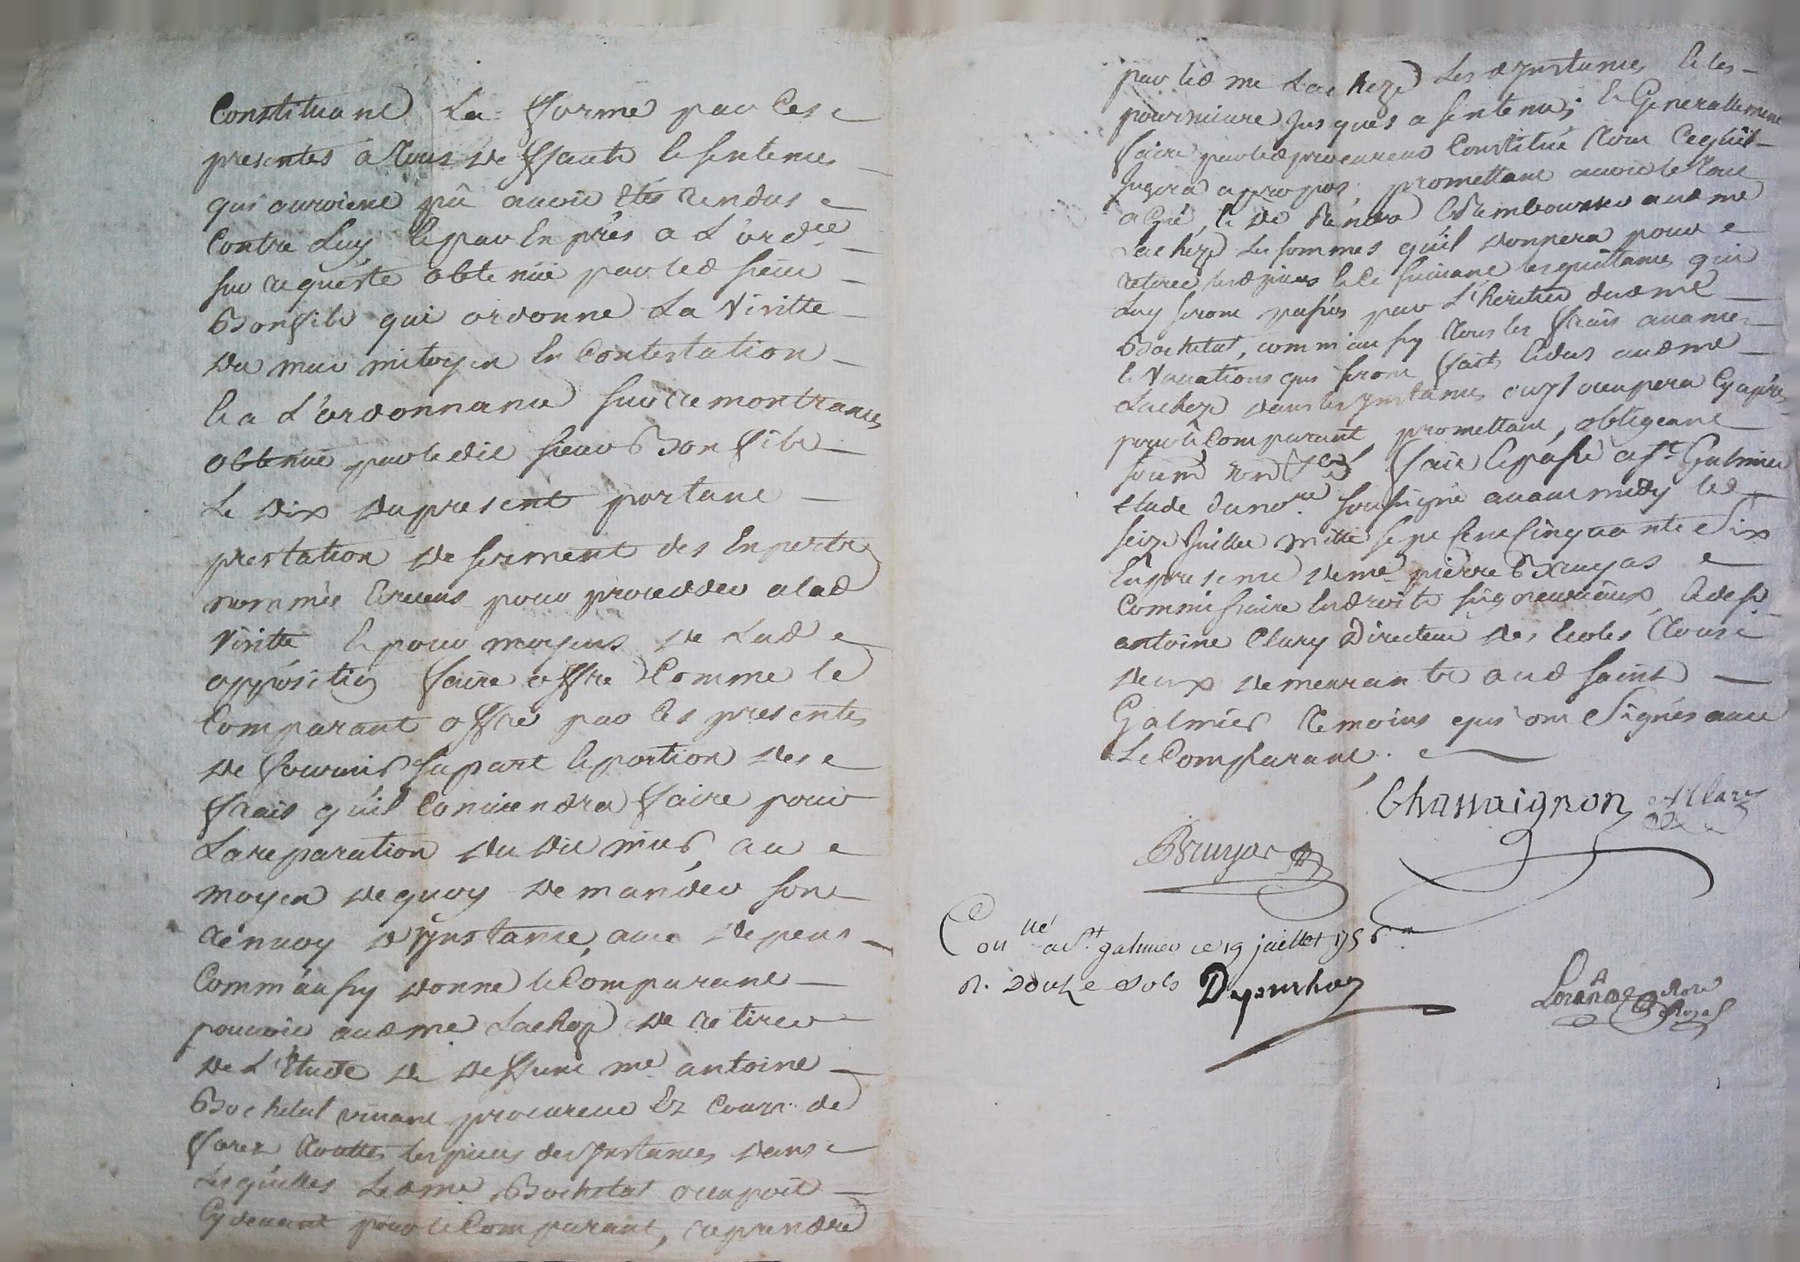 Constituant La forme par Ces
presentes a Tous deffauts & sentences
qui auroient pû avoir étés rendus
Contre Luy & par Exprés a L'ord.ce
sur requéste obtenüe par led sieur
Bonfils qui ordonne La Visitte
du mur mitoyen En Contestation
& a L'ordonnance sur remontrances
obtenüe par ledit sieur Bonfils
Le dix du present portant
prestation de serment des Experts
nommés pour proceder a lad
Visitte & pour moyens de Lad
opposition faire offre Comme le
Comparant offre par Ces presentes
de fournir sa part & portion des
frais qu'il Conviendra faire pour
La reparation du dit mur, au
moyen de quoy demander son
rénvoy d'Instance, avec depens
Comm'aussy donne le Comparant
pouvoir aud me Lacheze de retirer
de L'Etude de deffunt me antoine
Bochetal vivant procureur Ez Cours de
forez Touttes les pieces des Instances dans
Lesquelles Led me Bochetal occupoit
Cy devant pour le Comparant, reprendre
par led me Lacheze Les Instances & les
poursuivre Jusques a sentence; & Generallement
faire par led procureur Constitué Tout Ce qu'il
Jugera apropos, promettant avoir le Tout
a Gré & de Rendre & Rembourser aud me
Lacheze Les sommes qu'il donnera pour
retirer lesd pieces & Ce suivant les quittances qui
Luy seront passées par L'héritier dud me
Bochetal, comm'aussy Tous les frais avances
& Vacations qui seront faits & dus aud me
Lacheze dans les Instances ou Il occupera Cy aprés
pour le Comparant, promettant, obligeant
soum renon &c fait & passé a St Galmier
étude du no.re soussigné avant midy le
seize Juillet mille sept Cent Cinquante Six
En presence de me pierre Bruyas
Commissaire En droits seigneuriaux, & de sr
antoine Clary Directeur des Ecoles Tous
deux demeurants aud saint
Galmier Temoins qui ont Signés avec
Le Comparant.
Chassaignon
Bruyas
Con.llé a St galmier ce 19 juillet 1756
R. Douze sols